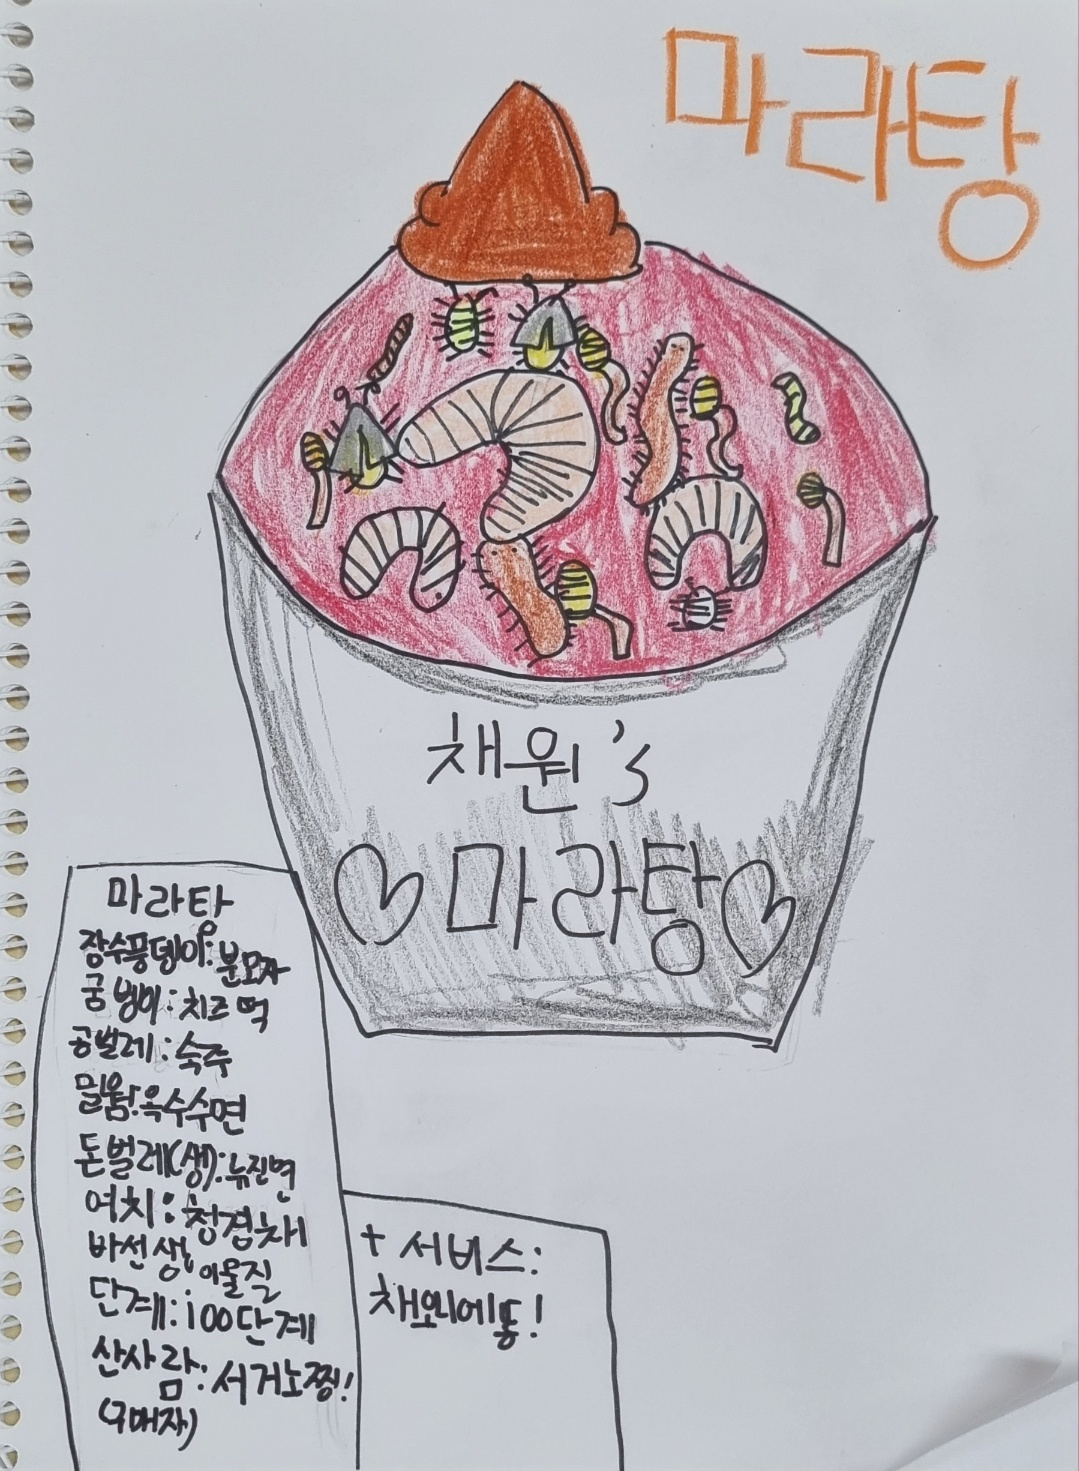 마라탕
채원's
♡마라탕♡
마라탕
장수풍뎅이: 분모자
굼벵이: 치즈떡
공벌레: 숙주
밀웜: 옥수수면
돈벌레(생): 뉴진면
여치: 청경채
바선생:
단계: 100단계
산사람: 서거노찡!
(구매자)
+ 서비스:
채원이에 똥!